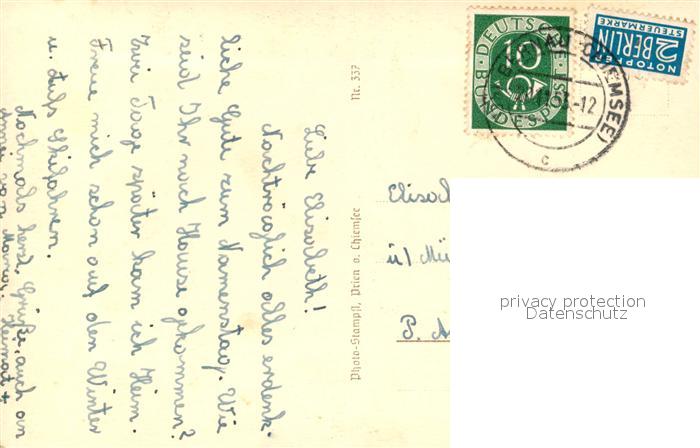 Liebe Elisabeth!
Nachträglich alles erdenk-
liche Gute zum Namenstag. Wie
seid Ihr nach Hause gekommen?
Zwei Tage später kam ich Heim.
Freue mich schon auf den Winter
u. aufs Skifahren.
Nochmals herzl. Grüße, auch an
von
Photo-Stampfl, Prien a. Chiemsee
Nr. 337
DEUTSCHE
BUNDESPOST
10
NOTOPFER
2 BERLIN
STEUERMARKE
CHIEMSEE)
-12
c
Elisa
ü/ Mü
P. A
privacy protection
Datenschutz